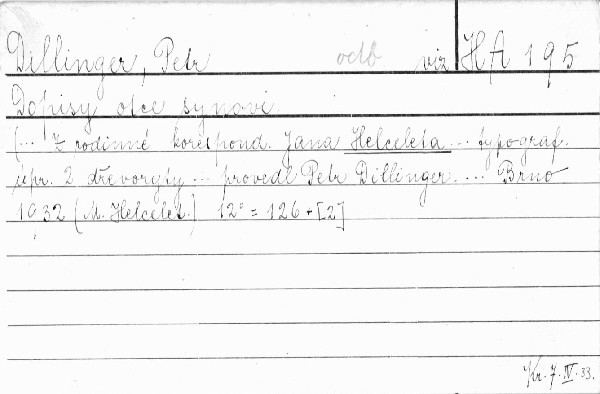 Dillinger, Petr odb viz HA 195
Dopisy otce synovi.
(... Z rodinné korespond. Jana Helceleta ... typograf.
upr. 2 dřevoryty ... provedl Petr Dillinger .... Brno
1932 (M. Helcelet.) 12° = 126 + [2]
Kr. 7. IV. 33.